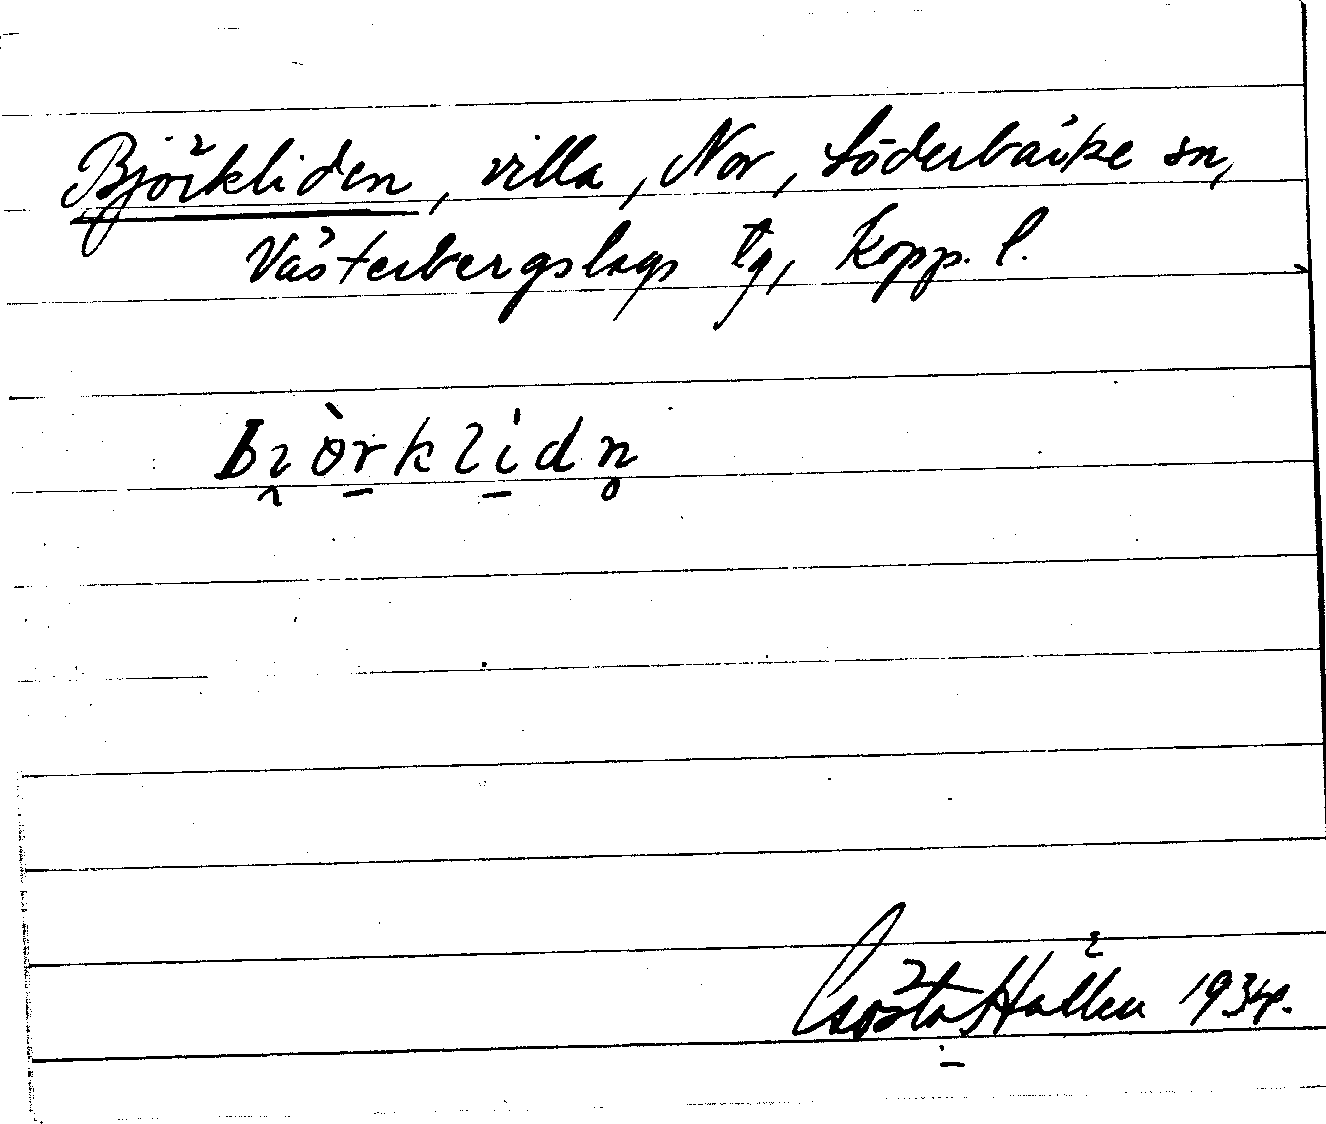 Björkliden, villa, Nor, Söderbärke sn,
Västerbergslags tg, Kopp. l.
bi̯ò̱rklí̱dn̥
Gösta Hallen 1934.